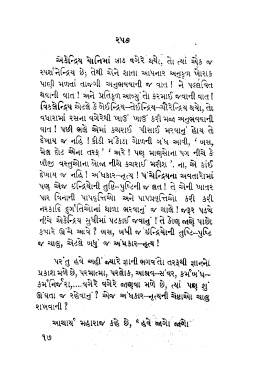 ૨૫૭
એકેન્દ્રિય યોનિમાં ઝાડ વગેરે થયો, તો ત્યાં એક જ
સ્પર્શનેન્દ્રિય છે; તેથી એને શાતા આપનાર અનુકૂળ ખોરાક
પાણી મળતાં તાજગી અનુભવવાની જ વાત ! ને પલ્લવિત
થવાની વાત ! અને પ્રતિકૂળ આવ્યું તો કરમાઈ જવાની વાત !
વિકલેન્દ્રિય એટલે કે બેઈન્દ્રિય-તેઈન્દ્રિય-ચૌરેન્દ્રિય થયો, તો
વધારામાં રસના વગેરેથી ખાઉં ખાઉં કરી મજા અનુભવવાની
વાત ! પછી ભલે એમાં કચરાઈ પીસાઈ મરવાનું હોય તે
દેખાય જ નહિ ! કીડી મંકોડા ગોળની ગંધ આવી, ' બસ,
મેલ દોટ એના તરફ ' ' અરે ! પણ માણસોના પગ નીચે કે
બીજી વસ્તુઓના બોજા નીચે કચરાઈ મરીશ.' ના, એ કાંઈ
દેખાય જ નહિ ! અંધકાર-નૃત્ય ! પંચેન્દ્રિયના અવતારોમાં
પણ એજ ઇન્દ્રિયોની તુષ્ટિ-પુષ્ટિની જ લત ! તે એની ખાતર
પાર વિનાની પાપવૃત્તિઓ અને પાપપ્રવૃત્તિઓ કરી કરી
નરકાદિ દુર્ગતિઓનાં ભાતાં ભરવાનું જ ચાલે ! જરૂર પડ્યે
નીચે એકેન્દ્રિય સુધીમાં પટકાઈ જવાનું ! તે કોણ જાણે પાછો
ક્યારે ઊંચે આવે ? બસ, બધી જ ઇન્દ્રિયોની તુષ્ટિ-પુષ્ટિ
જ ચાલુ, એટલે બધું જ અંધકાર-નૃત્ય !
પરંતુ હવે અહીં જ્યારે જ્ઞાની ભગવંતો તરફથી જ્ઞાનનો
પ્રકાશ મળે છે, પરમાત્મા, પરલોક, આશ્રવ-સંવર, કર્મબંધ-
કર્મનિર્જરા,....વગેરે વગેરે જાણવા મળે છે, ત્યાં પણ શું
ઊંઘતા જ રહેવાનું ? એજ અંધકાર-નૃત્યની ચેષ્ટાઓ ચાલુ
રાખવાની ?
આચાર્ય મહારાજ કહે છે, 'હવે જાગો જાગો.
૧૭